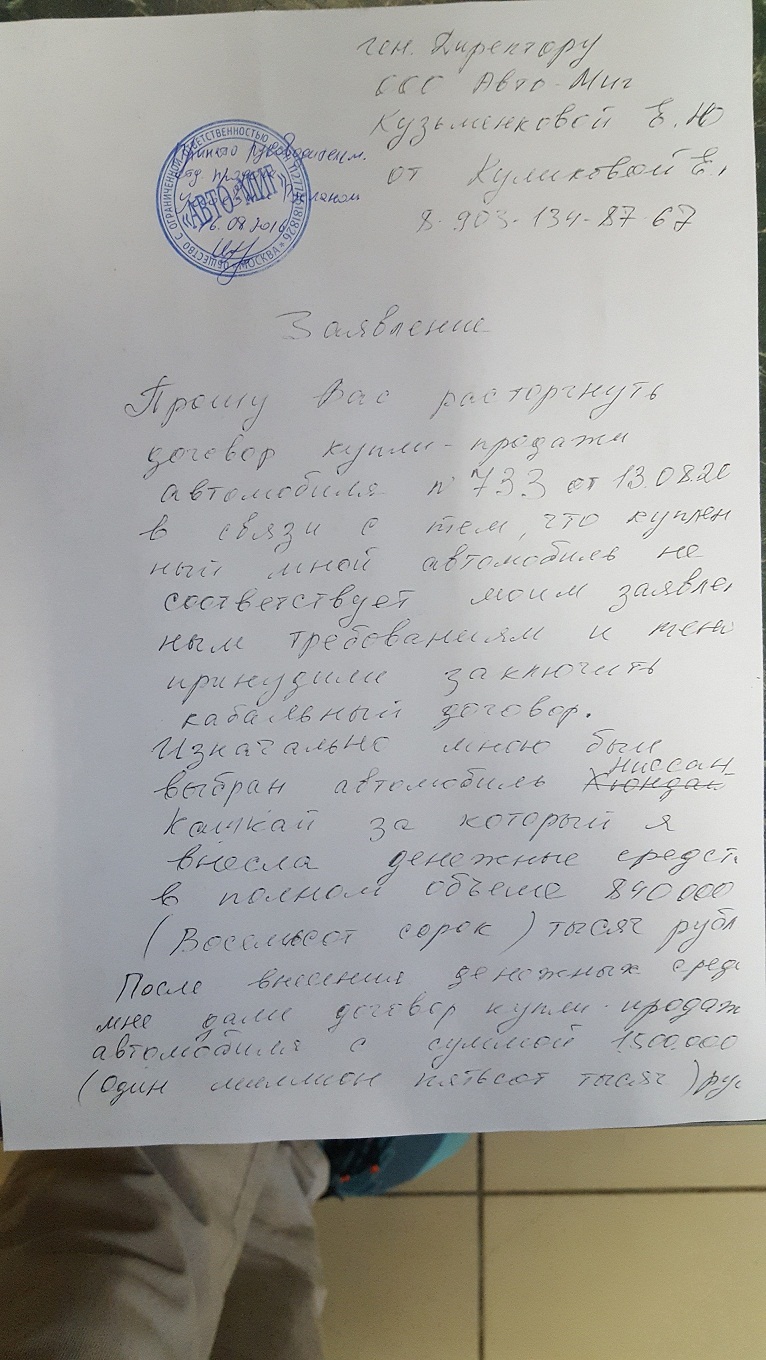 ген. Директору
ООО Авто-Миг
Кузьменковой Е.Ю
от Куликовой Е.
8-903-134-87-67
Принято руководителем
ОБЩЕСТВО С ОГРАНИЧЕННОЙ ОТВЕТСТВЕННОСТЬЮ
«АВТО-МИГ»
16.08.2016
* МОСКВА *
Заявление
Прошу Вас расторгнуть
договор купли-продажи
автомобиля № 733 от 13.08.20
в связи с тем, что куплен
ный мной автомобиль не
соответствует моим заявлен
ным требованиям и меня
принудили заключить
кабальный договор.
Изначально мною был
ниссан
выбран автомобиль Хюндай
Кашкай за который я
внесла денежные средст
в полном объеме 840000
(Восемьсот сорок) тысяч рубл
После внесения денежных сред
мне дали договор купли-продаж
автомобиля с суммой 1500.000
(один миллион пятьсот тысяч) ру